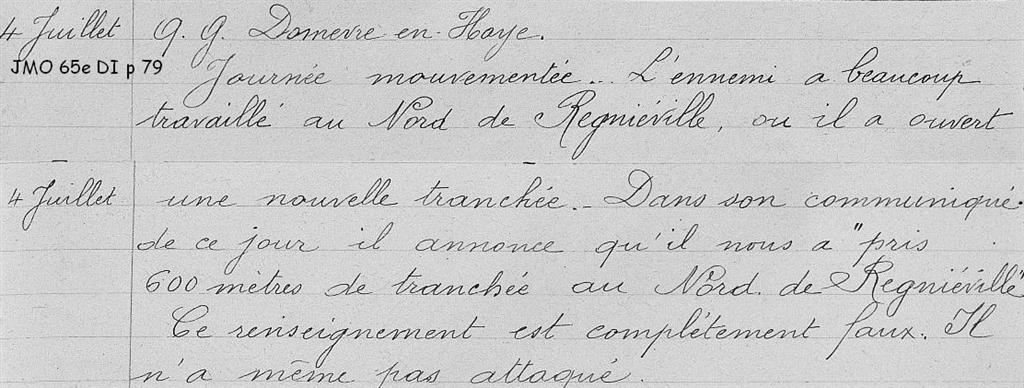 4 Juillet Q. G. Domevre en-Haye.
JMO 65e DI p 79
Journée mouvementée.. L'ennemi a beaucoup
travaillé au Nord de Regniéville, ou il a ouvert
4 Juillet une nouvelle tranchée.- Dans son communiqué.
de ce jour il annonce qu'il nous a "pris
600 mètres de tranchée au Nord de Regniéville"
Ce renseignement est complétement faux. Il
n'a même pas attaqué.